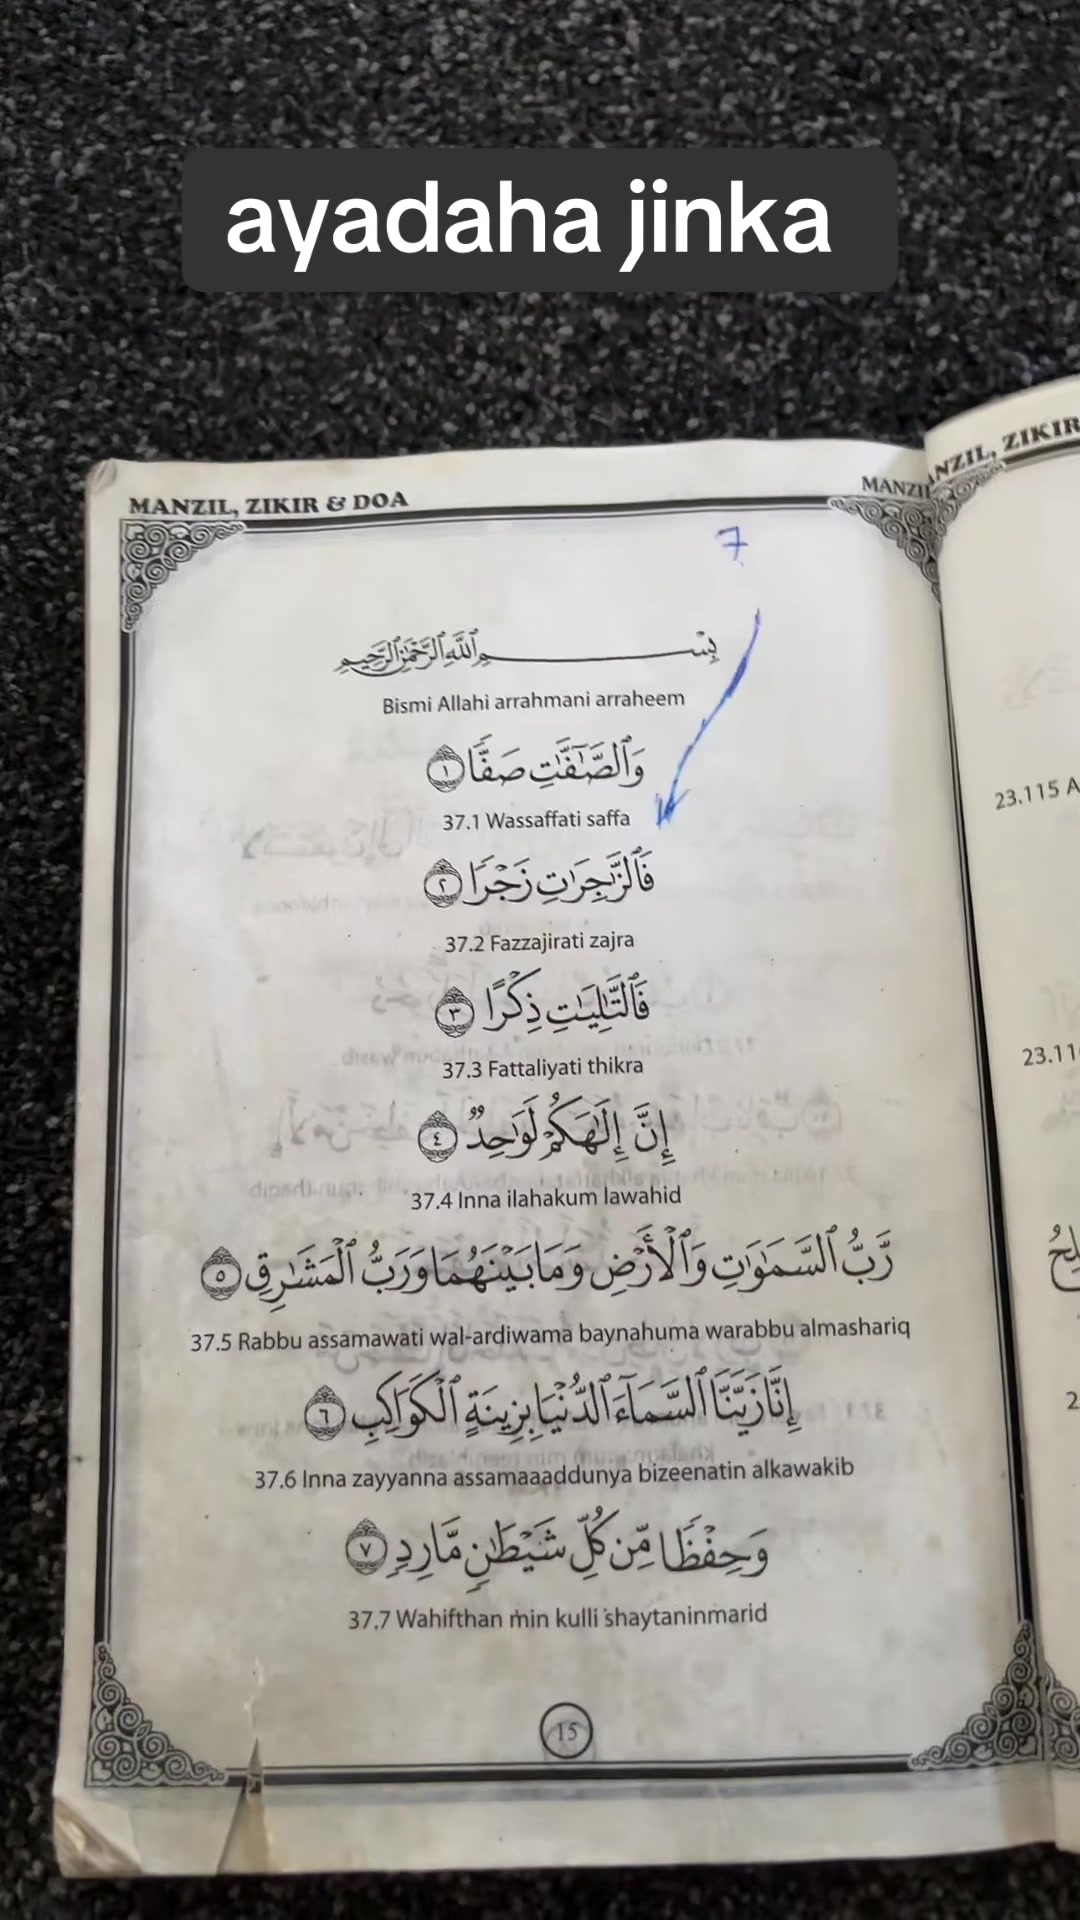 ayadaha jinka
MANZIL, ZIKIR & DOA
7
بِسْمِ ٱللَّهِ ٱلرَّحْمَٰنِ ٱلرَّحِيمِ
Bismi Allahi arrahmani arraheem
وَٱلصَّـٰٓفَّـٰتِ صَفًّا ١
37.1 Wassaffati saffa
فَٱلزَّٰجِرَٰتِ زَجْرًا ٢
37.2 Fazzajirati zajra
فَٱلتَّـٰلِيَـٰتِ ذِكْرًا ٣
37.3 Fattaliyati thikra
إِنَّ إِلَـٰهَكُمْ لَوَٰحِدٌ ٤
37.4 Inna ilahakum lawahid
رَّبُّ ٱلسَّمَـٰوَٰتِ وَٱلْأَرْضِ وَمَا بَيْنَهُمَا وَرَبُّ ٱلْمَشَـٰرِقِ ٥
37.5 Rabbu assamawati wal-ardiwama baynahuma warabbu almashariq
إِنَّا زَيَّنَّا ٱلسَّمَآءَ ٱلدُّنْيَا بِزِينَةٍ ٱلْكَوَاكِبِ ٦
37.6 Inna zayyanna assamaaaddunya bizeenatin alkawakib
وَحِفْظًا مِّن كُلِّ شَيْطَـٰنٍ مَّارِدٍ ٧
37.7 Wahifthan min kulli shaytaninmarid
15
MANZIL, ZIKIR
23.115 A